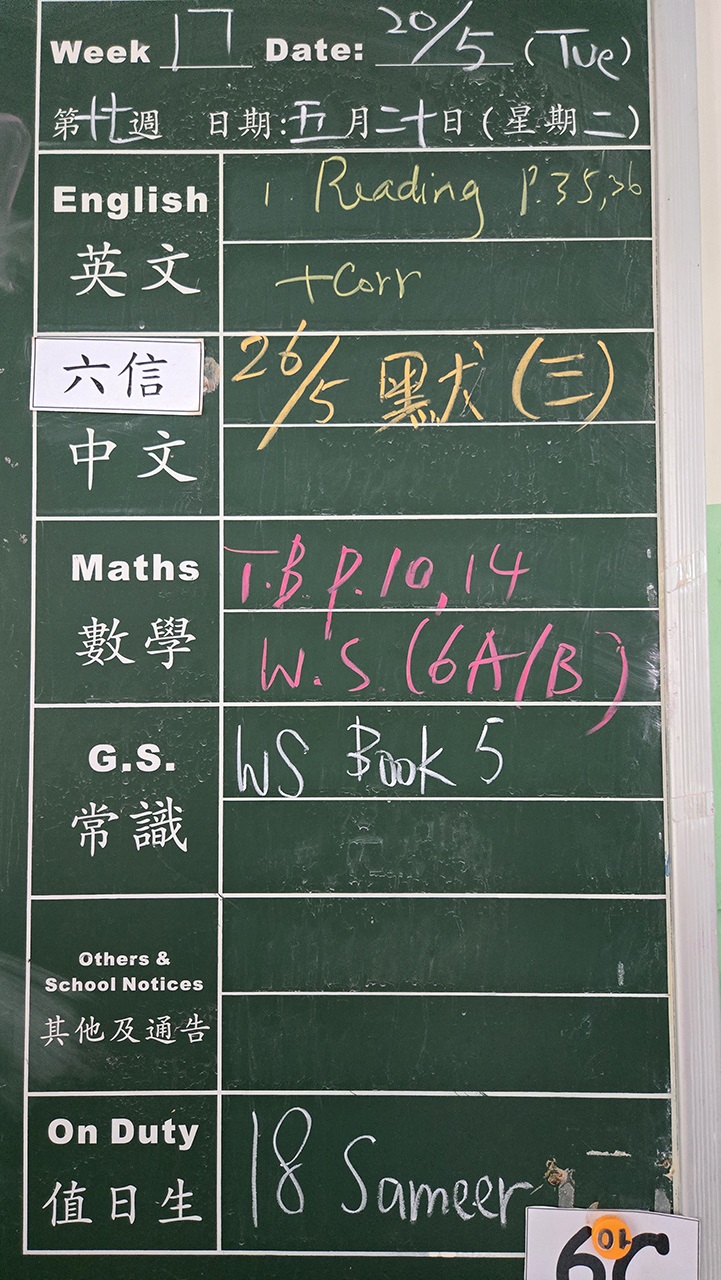 Week Date: 20/5 (Tue)
第廿週 日期:五月二十日(星期二)
English 1. Reading P.35,36
英文 +Corr
六信 26/5 默(三)
中文
Maths T.B. p.10,14
數學 W.S. (6A/B)
G.S. WS Book 5
常識
Others &
School Notices
其他及通告
On Duty 18 Sameer
值日生
6C